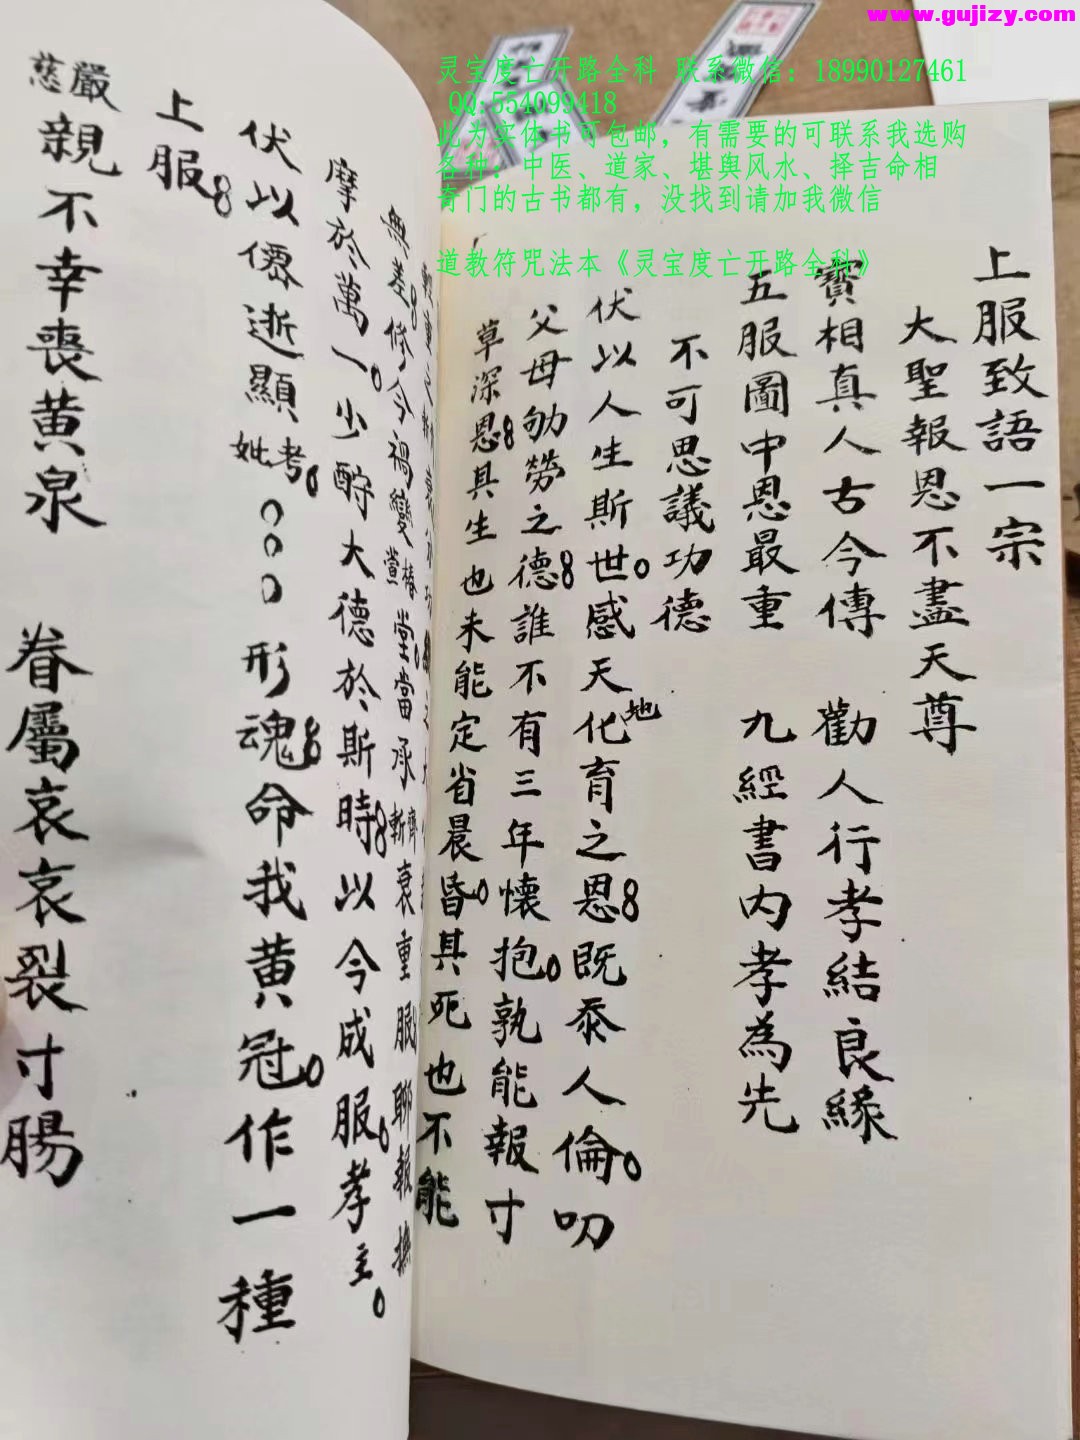 www.gujizy.com
灵宝度亡开路全科 联系微信：18990127461
QQ:554099418
此为实体书可包邮，有需要的可联系我选购
各种：中医、道家、堪舆风水、择吉命相
奇门的古书都有，没找到请加我微信
道教符咒法本《灵宝度亡开路全科》
上服致語一宗
大聖報恩不盡天尊
寶相真人古今傳 勸人行孝結良緣
五服圖中恩最重 九經書内孝為先
不可思議功德
伏以人生斯世感天地化育之恩既忝人倫叨
父母劬勞之德誰不有三年懷抱孰能報寸
草深恩其生也未能定省晨昏其死也不能
無差修今禍變椿萱堂當承齊斬衰重服聊報撫
摩於萬一少酧大德於斯時以今成服孝主
上服
伏以僊逝顯考妣○○○形魂命我黄冠作一種
嚴慈親不幸喪黄泉 眷屬哀哀裂寸腸